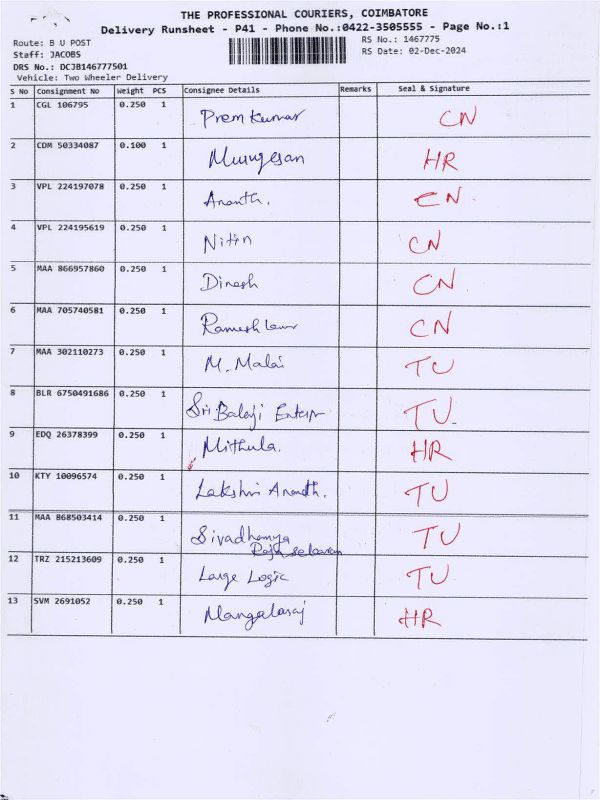 THE PROFESSIONAL COURIERS, COIMBATORE
Delivery Runsheet - P41 - Phone No.:0422-3505555 - Page No.:1
Route: B U POST RS No.: 1467775
Staff: JACOBS RS Date: 02-Dec-2024
DRS No.: DCJB146777501
Vehicle: Two Wheeler Delivery
S No Consignment No Weight PCS Consignee Details Remarks Seal & Signature
1 CGL 106795 0.250 1 Prem Kumar CN
2 CDM 50334087 0.100 1 Murugesan HR
3 VPL 224197078 0.250 1 Ananth. CN
4 VPL 224195619 0.250 1 Nitin CN
5 MAA 866957860 0.250 1 Dinesh CN
6 MAA 705740581 0.250 1 Ramesh CN
7 MAA 302110273 0.250 1 M. Malai TU
8 BLR 6750491686 0.250 1 Sri Balaji Enterp TU
9 EDQ 26378399 0.250 1 Mithula. HR
10 KTY 10096574 0.250 1 Lakshmi Ananth. TU
11 MAA 868503414 0.250 1 Sivadhanya TU
12 TRZ 215213609 0.250 1 Large Logic TU
13 SVM 2691052 0.250 1 Mangalaraj HR